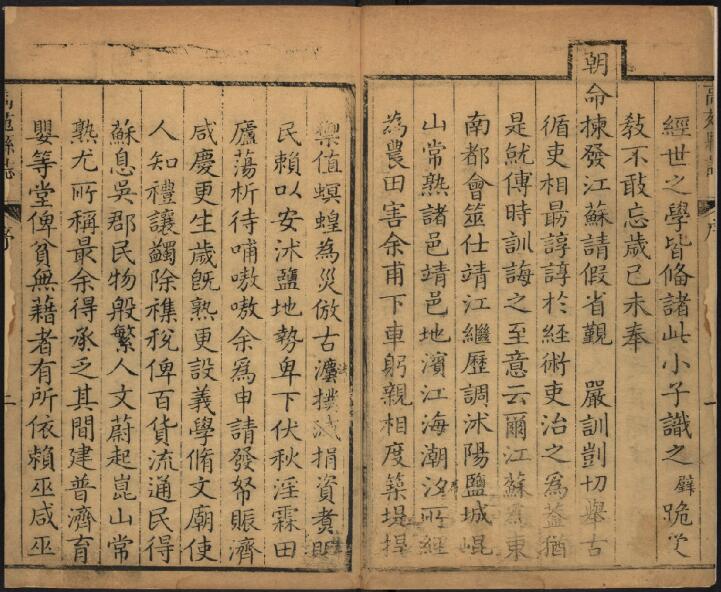 經世之學皆備諸此小子識之璧跪受
敎不敢忘歲己未奉
朝命揀發江蘇請假省覲 嚴訓剴切舉古
循吏相朂諄諄於經術吏治之爲葢猶
是就傅時訓誨之至意云爾江蘇爲東
南都會筮仕靖江繼歷調沭陽鹽城崐
山常熟諸邑靖邑地濱江海潮汐所經
為農田害余甫下車躬親相度築堤捍
禦值螟蝗為災倣古瀍撲滅捐資賚
民賴以安沭鹽地勢卑下伏秋淫霖田
廬蕩析待哺嗷嗷余爲申請發帑賑濟
咸慶更生歲旣熟更設義學脩文廟使
人知禮讓蠲除襍稅俾百貨流通民得
蘇息吳郡民物殷繁人文蔚起崑山常
熟尤所稱最余得承乏其間建普濟育
嬰等堂俾貧無藉者有所依賴巫咸巫
高苑縣誌
序
一
高苑縣誌
序
二